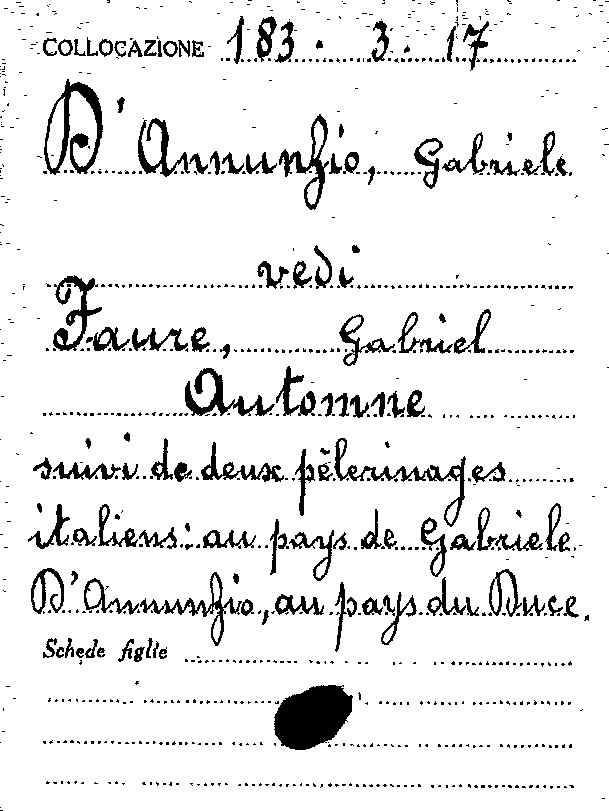 COLLOCAZIONE 183. 3. 17
D'Annunzio, Gabriele
vedi
Faure, Gabriel
Automne
suivi de deux pèlerinages
italiens: au pays de Gabriele
D'Annunzio, au pays du Duce.
Schede figlie